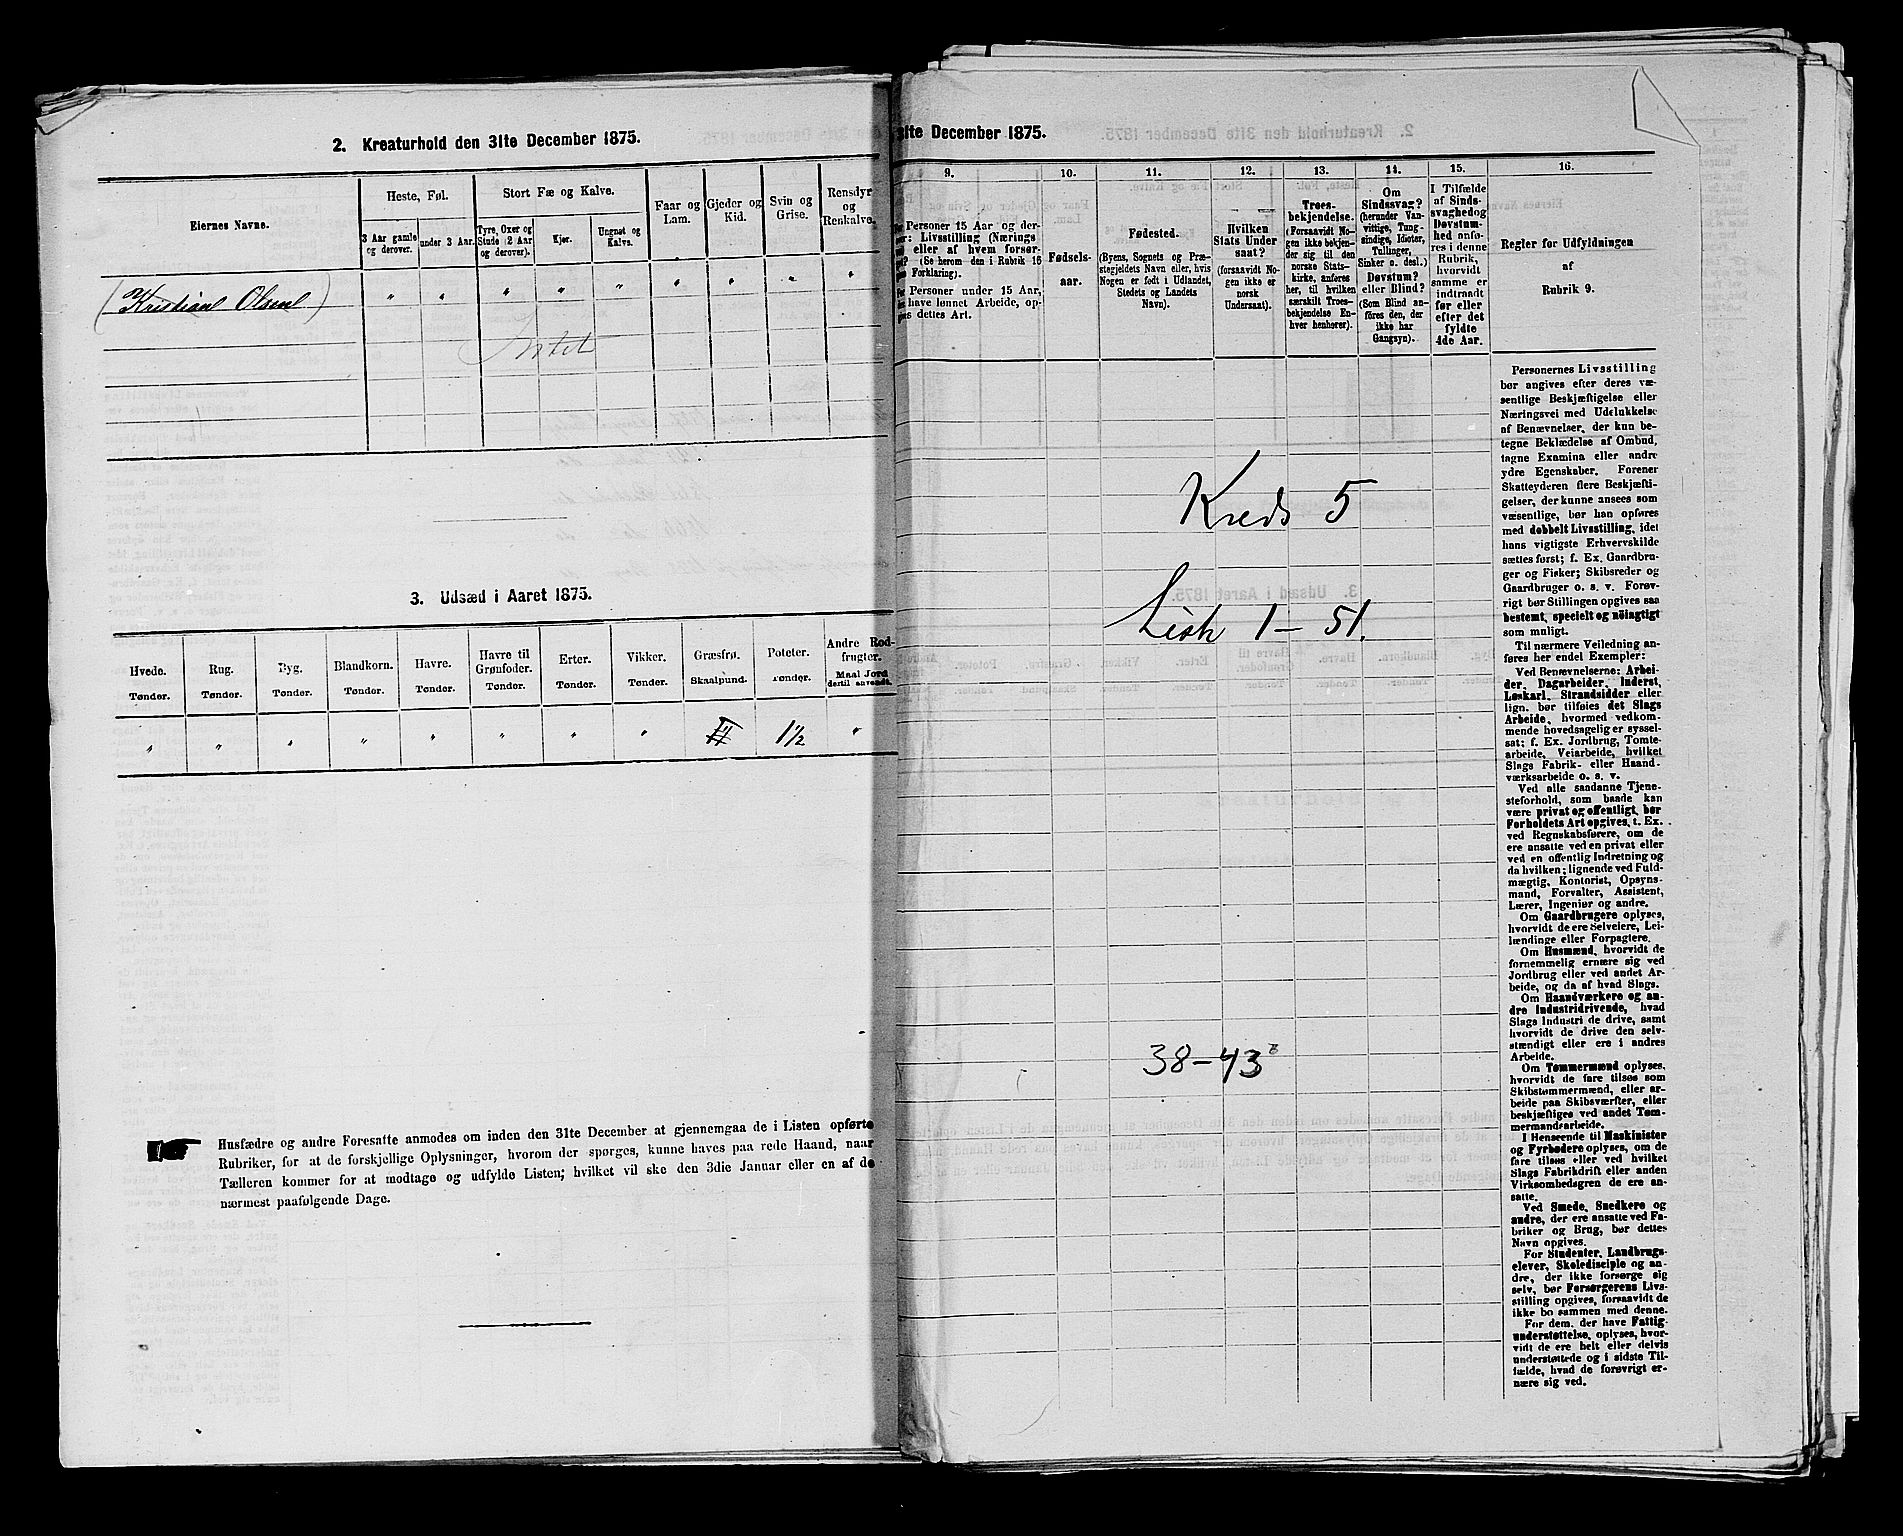 2. Kreaturhold den 31te December 1875.
Eiernes Navne.
Heste, Føl.
Stort Fæ og Kalve.
Faar og Lam.
Gjeder og Kid.
Svin og Grise.
Rensdyr og Renkalve.
3 Aar gamle og derover.
under 3 Aar.
Tyre, Oxer og Stude (2 Aar og derover).
Kjør.
Ungnøt og Kalve.
(Kristian Olsen) " " " " " " " " "
Intet
3. Udsæd i Aaret 1875.
Hvede. Rug. Byg. Blandkorn. Havre. Havre til Grønfoder. Erter. Vikker. Græsfrø. Poteter. Andre Rodfrugter.
Tønder. Tønder. Tønder. Tønder. Tønder. Tønder. Tønder. Tønder. Skaalpund. Tønder. Maal Jord dertil anvendt.
" " " " " " " " 1½ "
Husfædre og andre Foresatte anmodes om inden den 31te December at gjennemgaa de i Listen opførte
Rubriker, for at de forskjellige Oplysninger, hvorom der spørges, kunne haves paa rede Haand, naar
Tælleren kommer for at modtage og udfylde Listen; hvilket vil ske den 3die Januar eller en af de
nærmest paafølgende Dage.
31te December 1875.
9. 10. 11. 12. 13. 14. 15. 16.
Personer 15 Aar og der-
Livsstilling (Nærings
eller af hvem forsør-
(Se herom den i Rubrik 16
Forklaring).
Personer under 15 Aar,
have lønnet Arbeide, op-
dettes Art.
Fødsels-
aar.
Fødested.
(Byens, Sognets og Præ-
stegjeldets Navn eller, hvis
Nogen er født i Udlandet,
Stedets og Landets
Navn).
Hvilken
Stats Under
saat?
(forsaavidt No-
gen ikke er
norsk
Undersaat).
Troes-
bekjendelse.
(Forsaavidt No-
gen ikke bekjen-
der sig til den
norske Stats-
kirke, anføres
her, til hvilken
særskilt Troes-
bekjendelse En-
hver henhører).
Om
Sindssvag?
(herunder Van-
vittige, Tung-
sindige, Idioter,
Tullinger,
Sinker o. desl.)
Døvstum?
eller Blind?
(Som Blind an-
føres den, der
ikke har
Gangsyn).
I Tilfælde
af Sinds-
svaghed og
Døvstum-
hed anfø-
res i denne
Rubrik,
hvorvidt
samme er
indtraadt
før eller
efter det
fyldte
4de Aar.
Regler for Udfyldningen
af
Rubrik 9.
Kreds 5
Liste 1 – 51.
38 – 43
Personernes Livsstilling
bør angives efter deres væ-
sentlige Beskjæftigelse eller
Næringsvei med Udelukkelse
af Benævnelser, der kun be-
tegne Beklædelse af Ombud,
tagne Examina eller andre
ydre Egenskaber. Forener
Skatteyderen flere Beskjæfti-
gelser, der kunne ansees som
væsentlige, bør han opføres
med dobbelt Livsstilling, idet
hans vigtigste Erhvervskilde
sættes først; f. Ex. Gaardbru-
ger og Fisker; Skibsreder og
Gaardbruger o. s. v. Forøv-
rigt bør Stillingen opgives saa
bestemt, specielt og nöiagtigt
som muligt.
Til nærmere Veiledning an-
føres her endel Exempler:
Ved Benævnelserne: Arbei-
der, Dagarbeider, Inderst,
Løskarl, Strandsidder eller
lign. bør tilføies det Slags
Arbeide, hvormed vedkom-
mende hovedsagelig er syssel-
sat; f. Ex. Jordbrug, Tomte-
arbeide, Veiarbeide, hvilket
Slags Fabrik- eller Haand-
værksarbeide o. s. v.
Ved alle saadanne Tjene-
steforhold, som baade kan
være privat og offentligt, bør
Forholdets Art opgives, t. Ex.
ved Regnskabsførere, om de
ere ansatte ved en privat eller
ved en offentlig Indretning og
da hvilken; lignende ved Fuld-
mægtig, Kontorist, Opsyns-
mand, Forvalter, Assistent,
Lærer, Ingeniør og andre.
Om Gaardbrugere oplyses,
hvorvidt de ere Selveiere, Lei-
lændinge eller Forpagtere.
Om Husmænd, hvorvidt de
fornemmelig ernære sig ved
Jordbrug eller ved andet Ar-
beide, og da af hvad Slags.
Om Haandværkere og an-
dre Industridrivende, hvad
Slags Industri de drive, samt
hvorvidt de drive den selv-
stændigt eller ere i andres
Arbeide.
Om Tømmermænd oplyses,
hvorvidt de fare tilsøs som
Skibstømmermænd, eller ar-
beide paa Skibsværfter, eller
beskjæftiges ved andet Tøm-
mermandsarbeide.
I Henseende til Maskinister
og Fyrbødere oplyses, om de
fare tilsøs eller ved hvilket
Slags Fabrikdrift eller anden
Virksomhedsgren de ere an-
satte.
Ved Smede, Snedkere og
andre, der ere ansatte ved Fa-
briker og Brug, bør dettes
Navn opgives.
For Studenter, Landbrugs-
elever, Skoledisciple og an-
dre, der ikke forsørge sig
selv, bør Forsørgerens Livs-
stilling opgives, forsaavidt de
ikke bo sammen med denne.
For dem, der have Fattig-
understøttelse, oplyses, hvor-
vidt de ere helt eller delvis
understøttede og i sidste Til-
fælde, hvad de forøvrigt er-
nære sig ved.